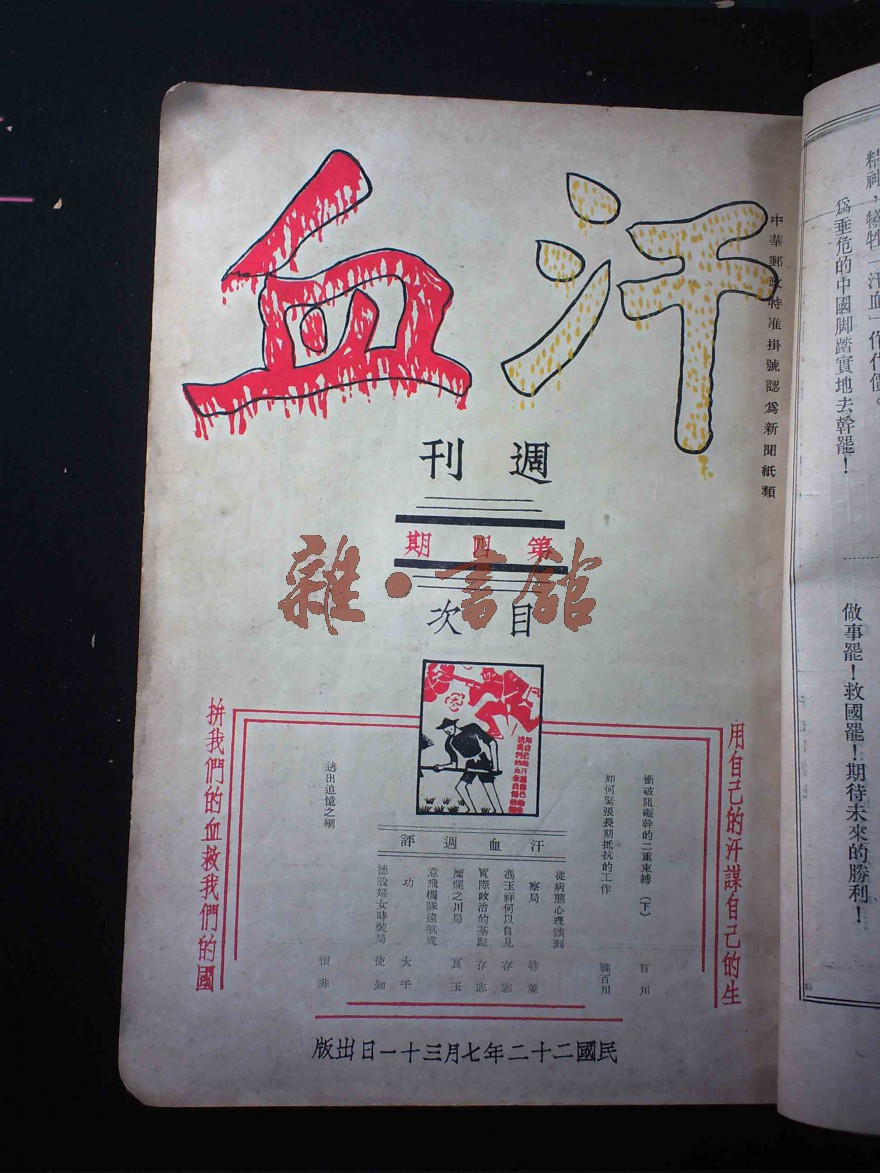 汗血
中華郵政特准掛號認爲新聞紙類
週刊
第四期
目次
雜·書館
用自己的汗謀自己的生
拚我們的血救我們的國
衝破阻礙幹的二重束縛(下) 百川
如何緊張長期抵抗的工作 百川
汗血週評
從病態心理談到察局
馮玉祥何以自見 存志
實際政治的基點 存志
糜爛之川局 真玉
意飛機隊遠航成功 大千
德設婦女時裝局 使知
逃出追憶之網 懷非
民國二十二年七月三十一日出版
精神,犧牲「汗血」作代價。
爲垂危的中國脚踏實地去幹罷!
做事罷!救國罷!期待未來的勝利!